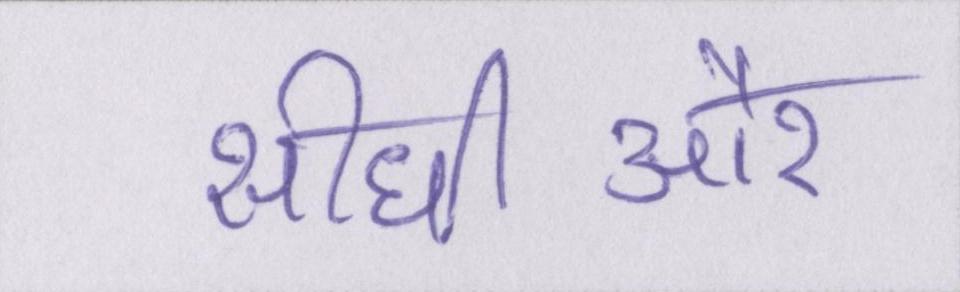 सीधी और